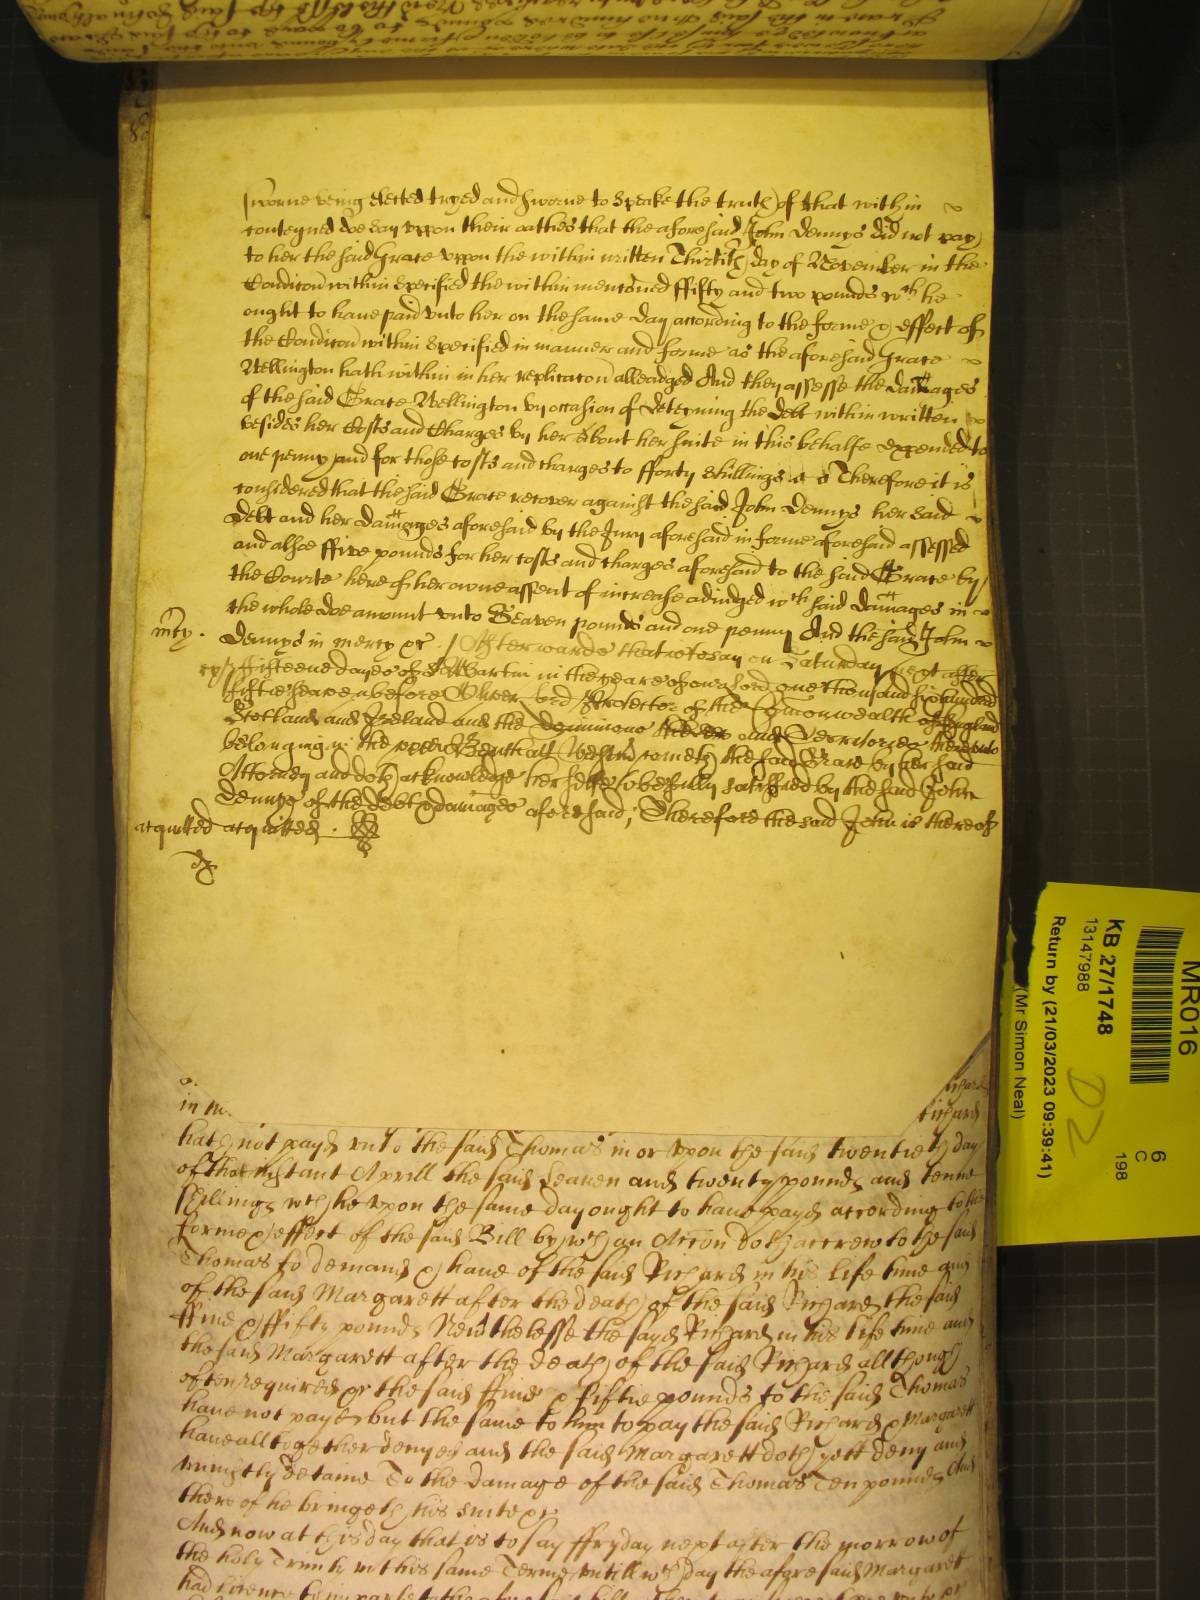 sworne being elected tryed and sworne to speake the truth of that within
conteyned doe say vppon their oathes that the aforesaid John Dennys did not pay
to her the said Grace vppon the within written Thirtith day of November in the
Condicon within specified the within mentioned ffifty and two pounds wch he
ought to haue paid vnto her on the same day according to the forme & effect of
the Condicon within specified in manner and forme as the aforesaid Grace
Wellington hath within in her replicacon alleadged And they assesse the damages
of the said Grace Wellington by occasion of deteyning the debt within written
besides her Costs and Charges by her about her suite in this behalfe expended to
one penny and for those costs and charges to fforty shillings Therefore it is
considered that the said Grace recover against the said John Dennys her said
debt and her damages aforesaid by the Jury aforesaid in forme aforesaid assessed
and alsoe ffive pounds for her costs and charges aforesaid to the said Grace by
the Courte here of her owne assent of increase adiudged wch said damages in
the whole doe amount vnto Seaven pounds and one penny And the said John
mcy.
Dennys in mercy &c. Afterwards that is to say on Saturday next after
fifteene dayes of St Martin in the yeare of our Lord one thousand six hundred
fiftie seaven before Oliver Lord Protector of the Comonwealth of England
Scotland and Ireland and the dominions and Territories thereunto
belonging in the upper Bench att Westmr cometh the said Grace by her said
Attorney and doth acknowledge her selfe to be fully satisfied by the said John
Dennys of the debt & damages aforesaid, Therefore the said John is thereof
acquitted acquitted.
in m
Richard
hath not payd vnto the said Thomas in or vpon the said twentieth day
of that instant Aprill the said seaven and twenty pounds and tenne
shillings wch he vpon the same day ought to haue payd according to the
forme & effect of the said Bill by wch an Accon doth accrew to the said
Thomas to demand & haue of the said Richard in his life time and
of the said Margarett after the death of the said Richard the said
ffiue & ffifty pounds Neuthelesse the sayd Richard in his life time and
the said Margarett after the death of the said Richard allthough
often required &c the said ffiue & fiftie pounds to the said Thomas
haue not payd but the same to him to pay the said Richard & Margarett
haue alltogether denyed and the said Margarett doth yett deny and
uniustly detaine To the damage of the said Thomas Ten pounds And
thereof he bringeth his suite &c
And now at this day that is to say ffryday next after the morrow of
the holy Trinity in this same Terme vntill wch day the aforesaid Margarett
had licence to imparle to the aforesaid bill
MR016
KB 27/1748
13147988
Return by (21/03/2023 09:39:41)
(Mr Simon Neal)
6
C
198
D2